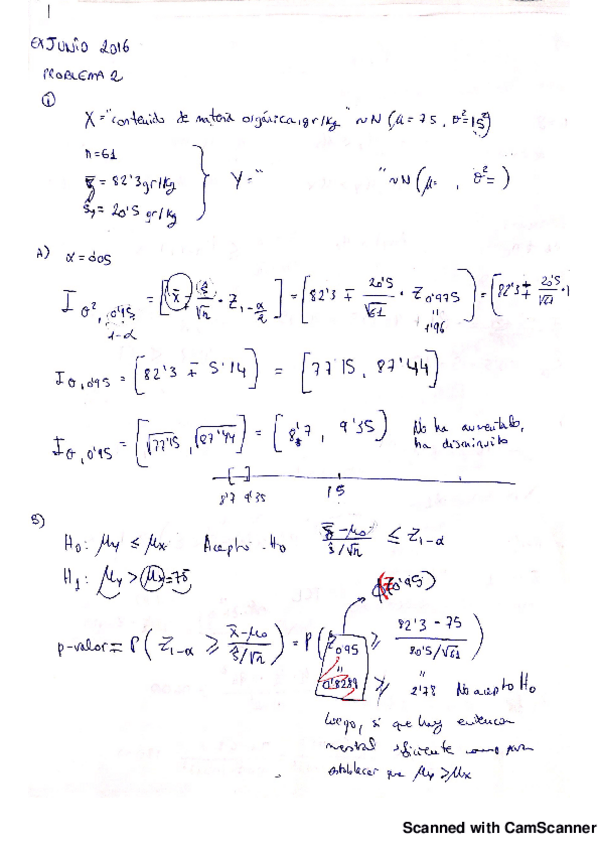 EX JUNIO 2016
PROBLEMA 2
①
X = "contenido de materia orgánica, gr/kg" ~ N (μ = 75, σ² = 15²)
n = 61
ȳ = 82'3 gr/kg
ŝy = 20'5 gr/kg
Y = " " ~ N (μ= , σ²= )
A) α = 0'05
I σ², 0'95 = [x̄ ∓ ŝ/√n · Z 1-α/2] = [82'3 ∓ 20'5/√61 · Z 0'975] = [82'3 ∓ 20'5/√61 · 1
1-α
" 1'96
I σ, 0'95 = [82'3 ∓ 5'14] = [77'15, 87'44]
I σ, 0'95 = [√77'15, √87'44] = [8'7, 9'35] No ha aumentado,
ha disminuido
8'7 9'35 15
B)
H₀: μy ≤ μx Acepto H₀ ȳ-μ₀/ŝ/√n ≤ Z 1-α
H₁: μy > μx = 75
(Z 0'95)
p-valor = P(Z 1-α ≥ x̄-μ₀/ŝ/√n) = P(Z 0'95 ≥ 82'3 - 75/20'5/√61)
" "
0'8289 ≥ 2'78 No acepto H₀
Luego, si que hay evidencia
muestral suficiente como para
establecer que μy > μx
Scanned with CamScanner